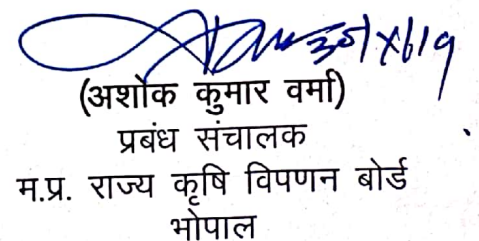 (अशोक कुमार वर्मा)
प्रबंध संचालक
म.प्र. राज्य कृषि विपणन बोर्ड
भोपाल